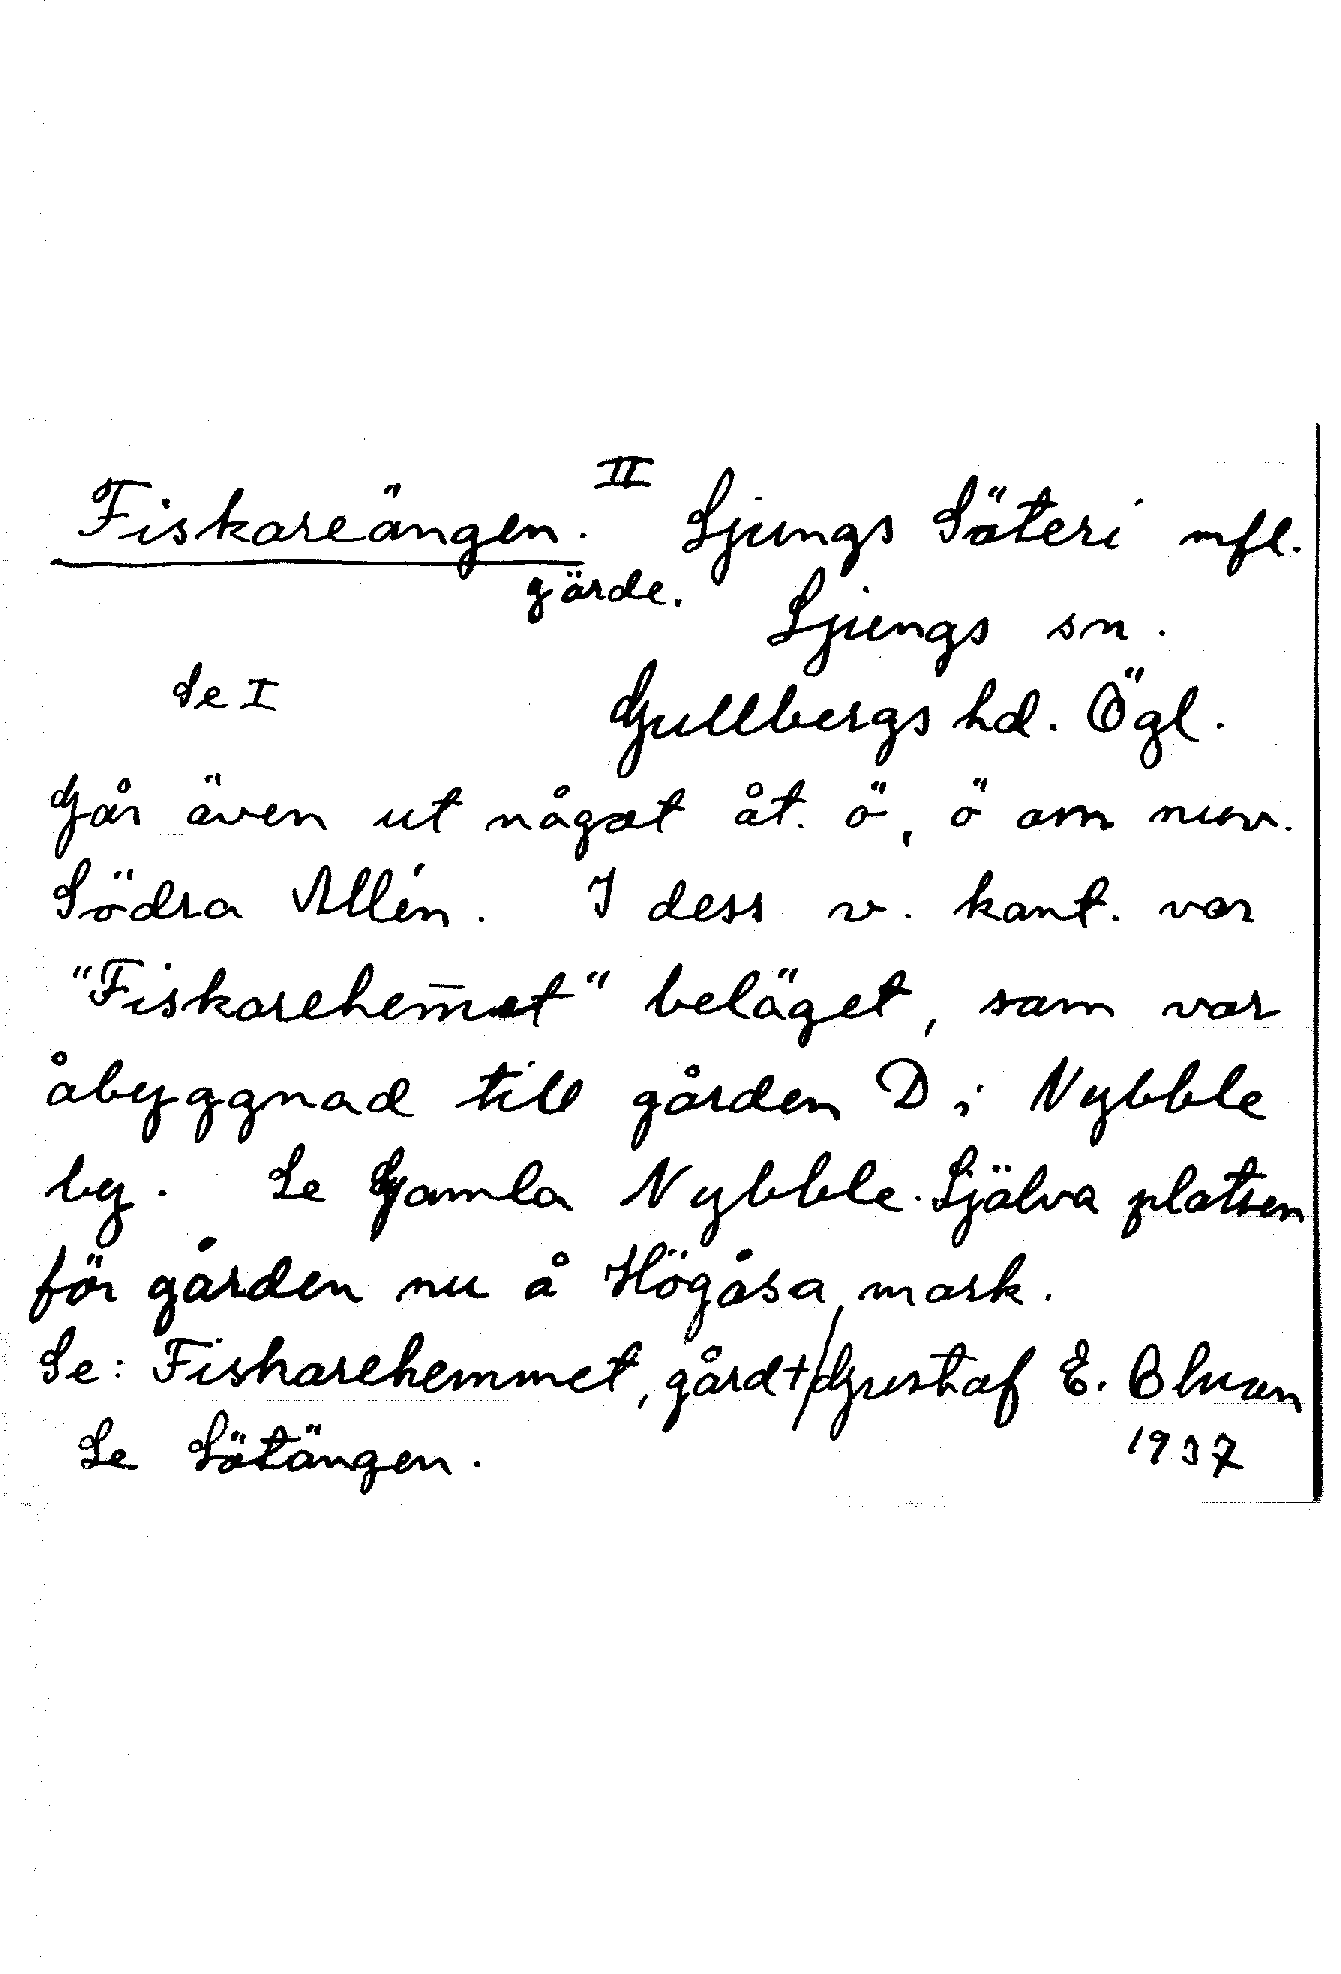 Fiskareängen. II Ljungs Säteri mfl.
gärde. Ljungs sn.
Se I Gullbergs hd. Ögl.
Går även ut något åt. ö, ö om nuv.
Södra Allén. I dess v. kant. var
"Fiskarehem̅et" beläget, som var
åbyggnad till gården D i Nybble
by. Se Gamla Nybble. Själva platsen
för gården nu å Högåsa mark.
Se: Fiskarehemmet, gård+/Gustaf E. Bluan
Se Sötängen. 1937